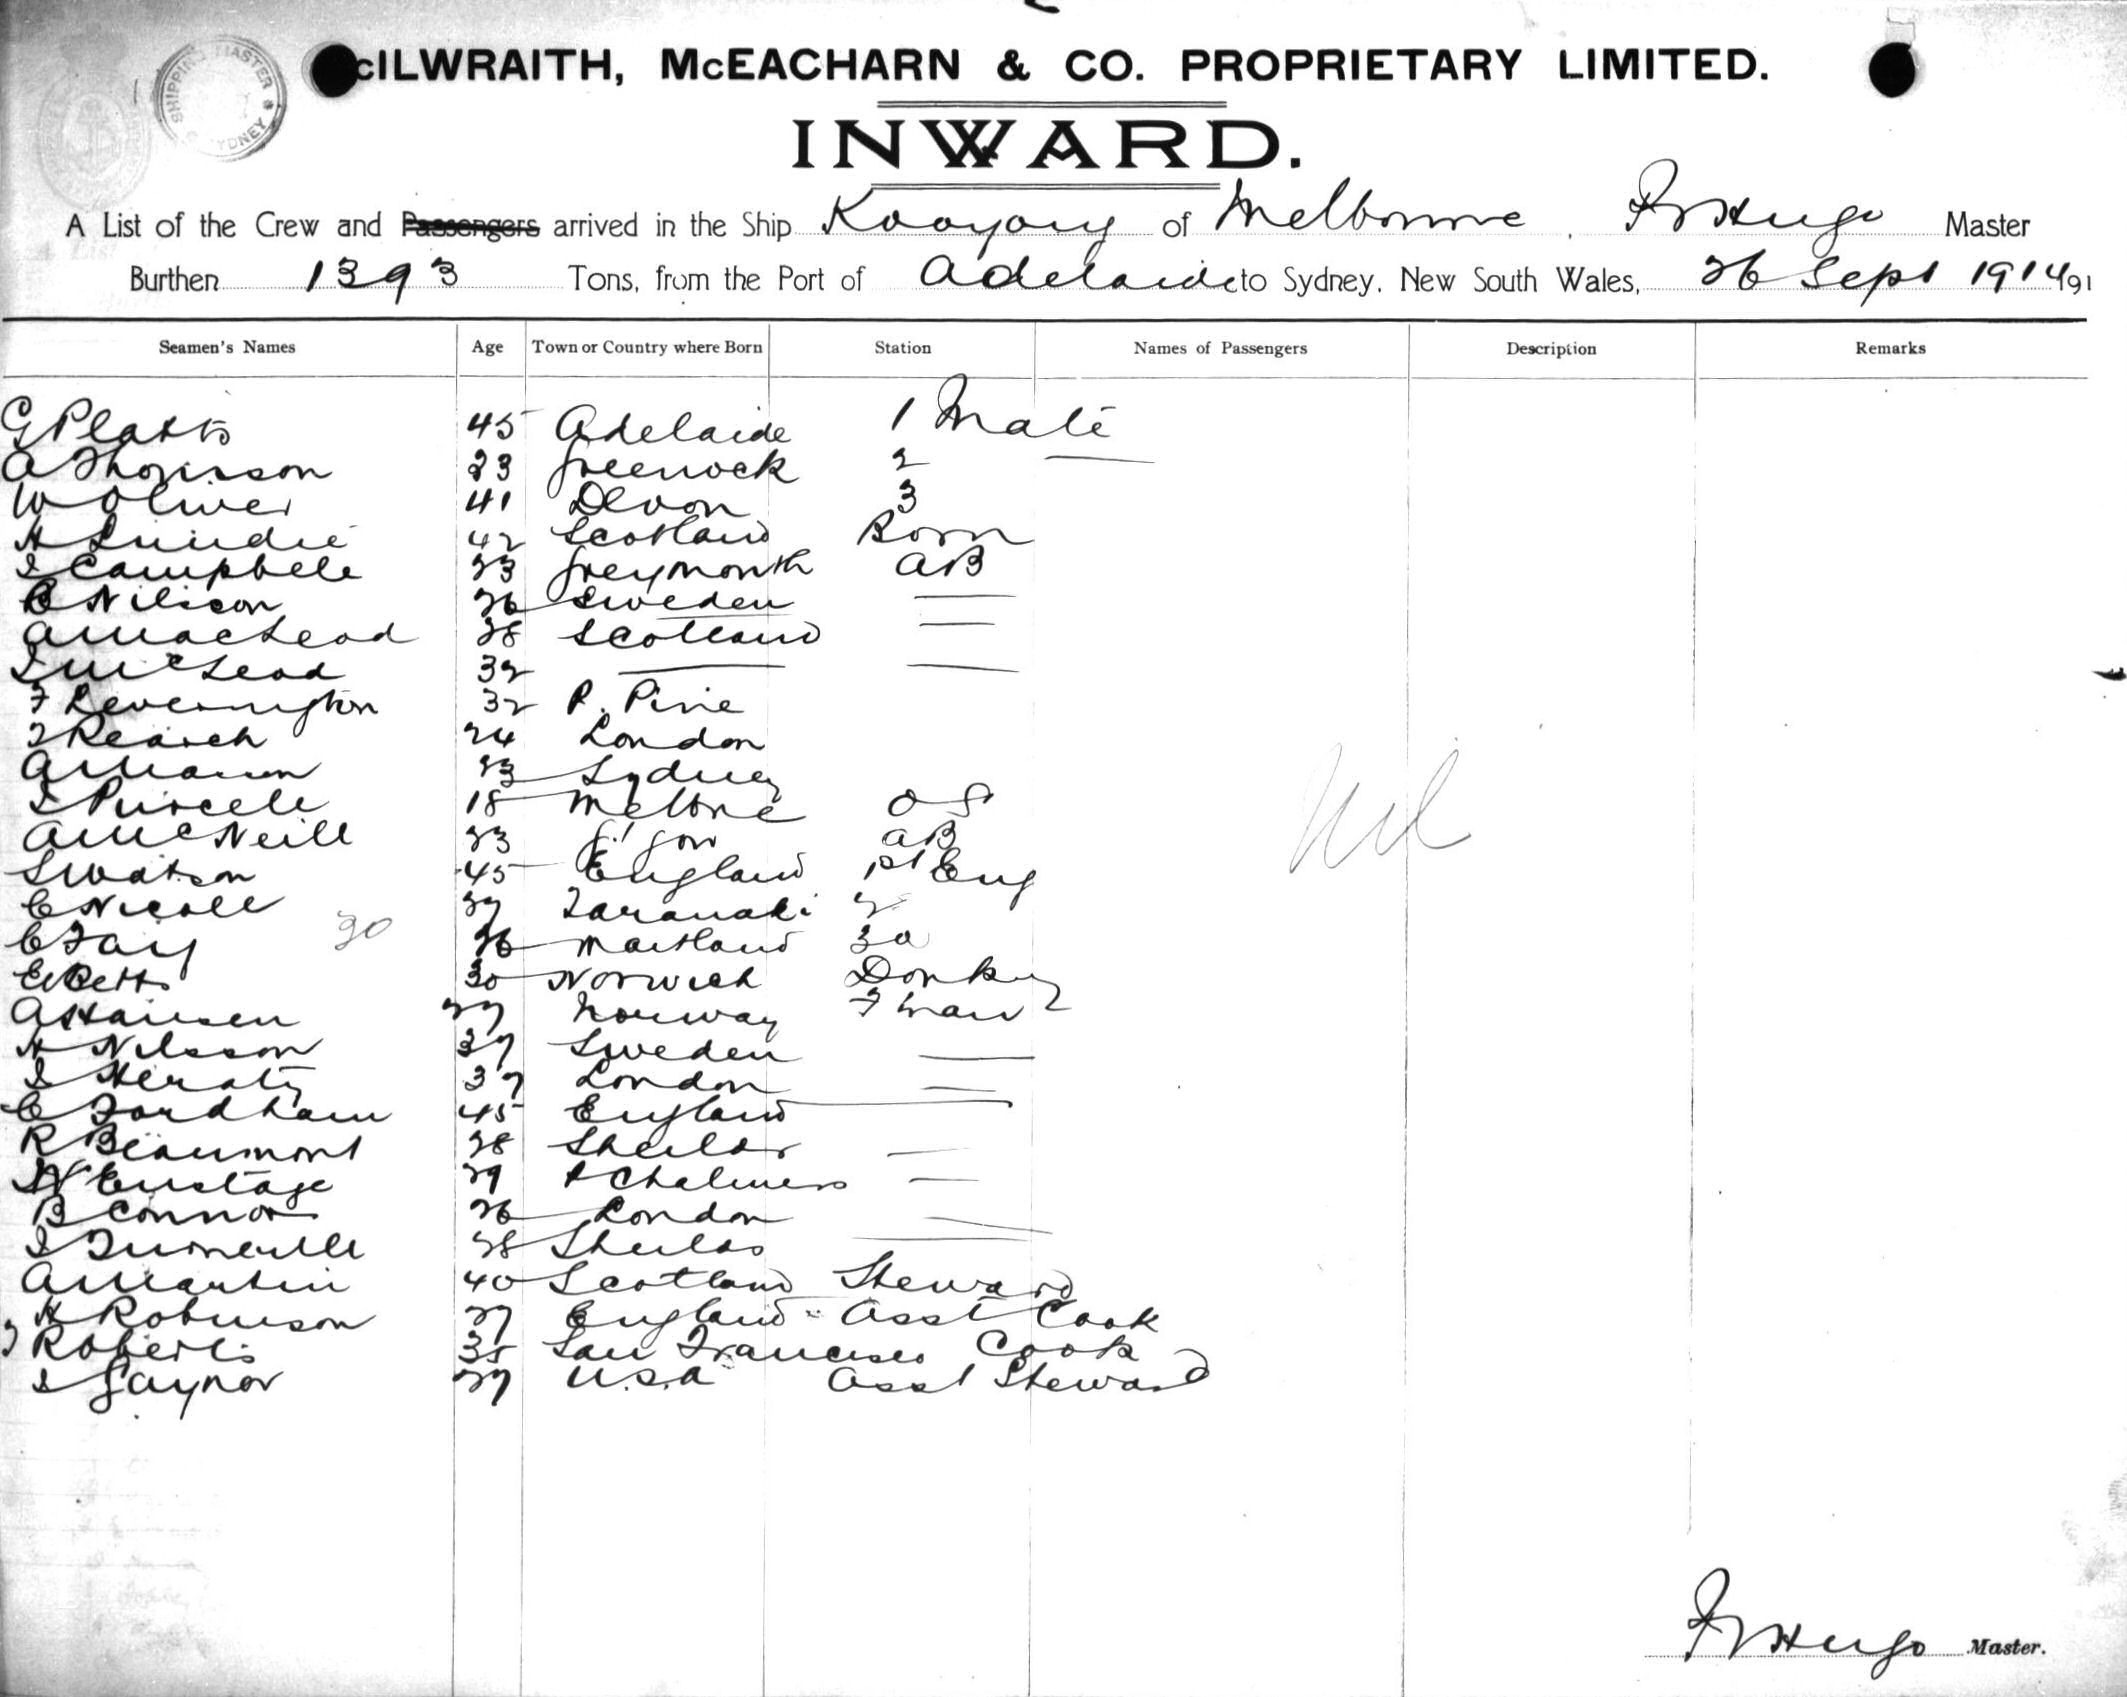 SHIPPING MASTER
SYDNEY
McILWRAITH, McEACHARN & CO. PROPRIETARY LIMITED.
INWARD.
A List of the Crew and Passengers arrived in the Ship Kooyong of Melbourne, Hugo Master
Burthen 1393 Tons, from the Port of Adelaide to Sydney, New South Wales, 26 Sept 1914 191
Seamen's Names Age Town or Country where Born Station Names of Passengers Description Remarks
G Platts 45 Adelaide 1 Mate
A Thomson 23 Greenock 2
W Oliver 41 Devon 3
H Lundie 42 Scotland Bosn
J Campbell 23 Greymouth AB
Nilsson 26 Sweden
A MacLeod 28 Scotland
J McLeod 32
F Leverington 32 P. Pirie
24 London
A 23 Sydney
J Purcell 18 Melbne OS
A McNeill 23 G'gow AB
S Watson 45 England 1st Eng
C Nicoll 27 Taranaki 2
C 26 Maitland 3a
30
E Betts 30 Norwich Donkey
A Hansen 27 Norway F man
H Nilsson 37 Sweden
J Heraty 37 London
C Fordham 45 England
R Beaumont 28 Sheilds
W Eustage 29 P Chalmers
B Connor 26 London
J 28 Sheilds
A Martin 40 Scotland Steward
H Robinson 27 England Asst Cook
J Roberts 35 San Francisco Cook
J Gaynor 27 U.S.A Asst Steward
Nil
Hugo Master.